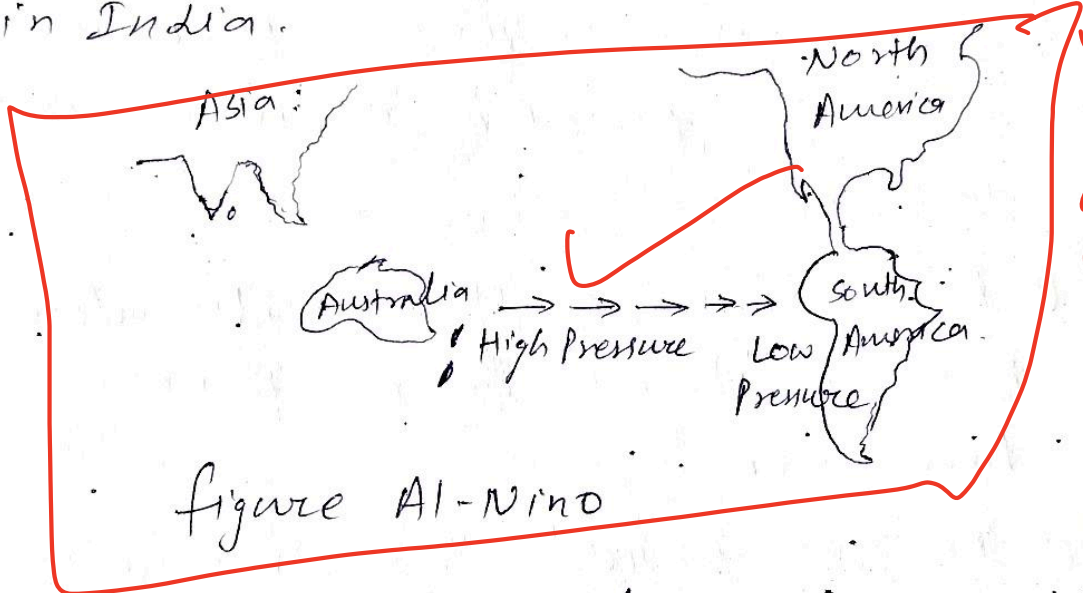 in India.
Asia:
North
America
Australia
South
America.
High Pressure
Low
Pressure
figure Al-Nino